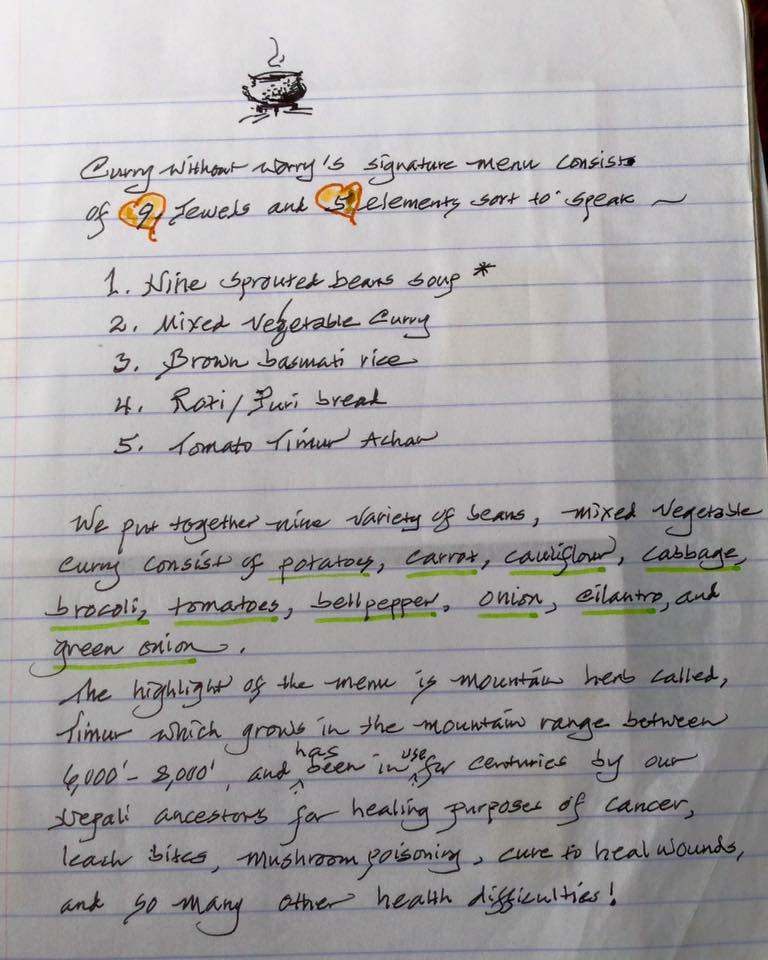 Curry without worry's signature menu consist
of 9 Jewels and 5 elements sort to speak ~
1. Nine sprouted beans soup *
2. Mixed Vegetable Curry
3. Brown basmati rice
4. Roti/Puri bread
5. Tomato Timur Achar
We put together nine variety of beans, mixed vegetable
curry consist of potatoes, carrot, cauliflour, cabbage,
brocoli, tomatoes, bellpepper, onion, cilantro, and
green onion.
The highlight of the menu is mountain herb called,
Timur which grows in the mountain range between
6,000'-8,000', and has been in use for centuries by our
Nepali ancestors for healing purposes of cancer,
leach bites, mushroom poisoning, cure to heal wounds,
and so many other health difficulties!